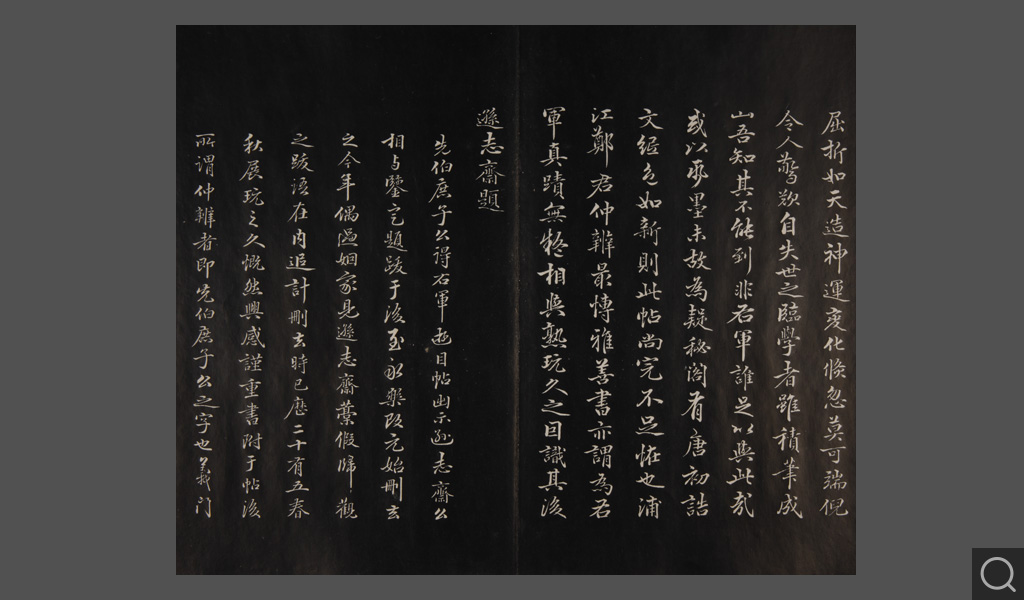 屈折如天造神運変化倐忽莫可端倪
令人驚歎自失世之臨學者雖積筆成
山吾知其不能到非右軍誰足以與此哉
或以承墨未故為疑秘閣有唐初誥
文絚色如新則此帖尚完不足恠也浦
江鄭君仲辨最愽雅善書亦謂為右
軍真蹟無疑相與熟玩久之因識其後
遜志齋題
先伯庶子公得右軍逰目帖幽示遜志齋公
相与鑒定題跋于後至永樂改元始刪去
之今年偶過姻家見遜志齋藁假歸觀
之跋語在内追計刪去時已歷二十有五春
秋展玩之久慨然興感謹重書附于帖後
所謂仲辨者即先伯庶子公之字也義門